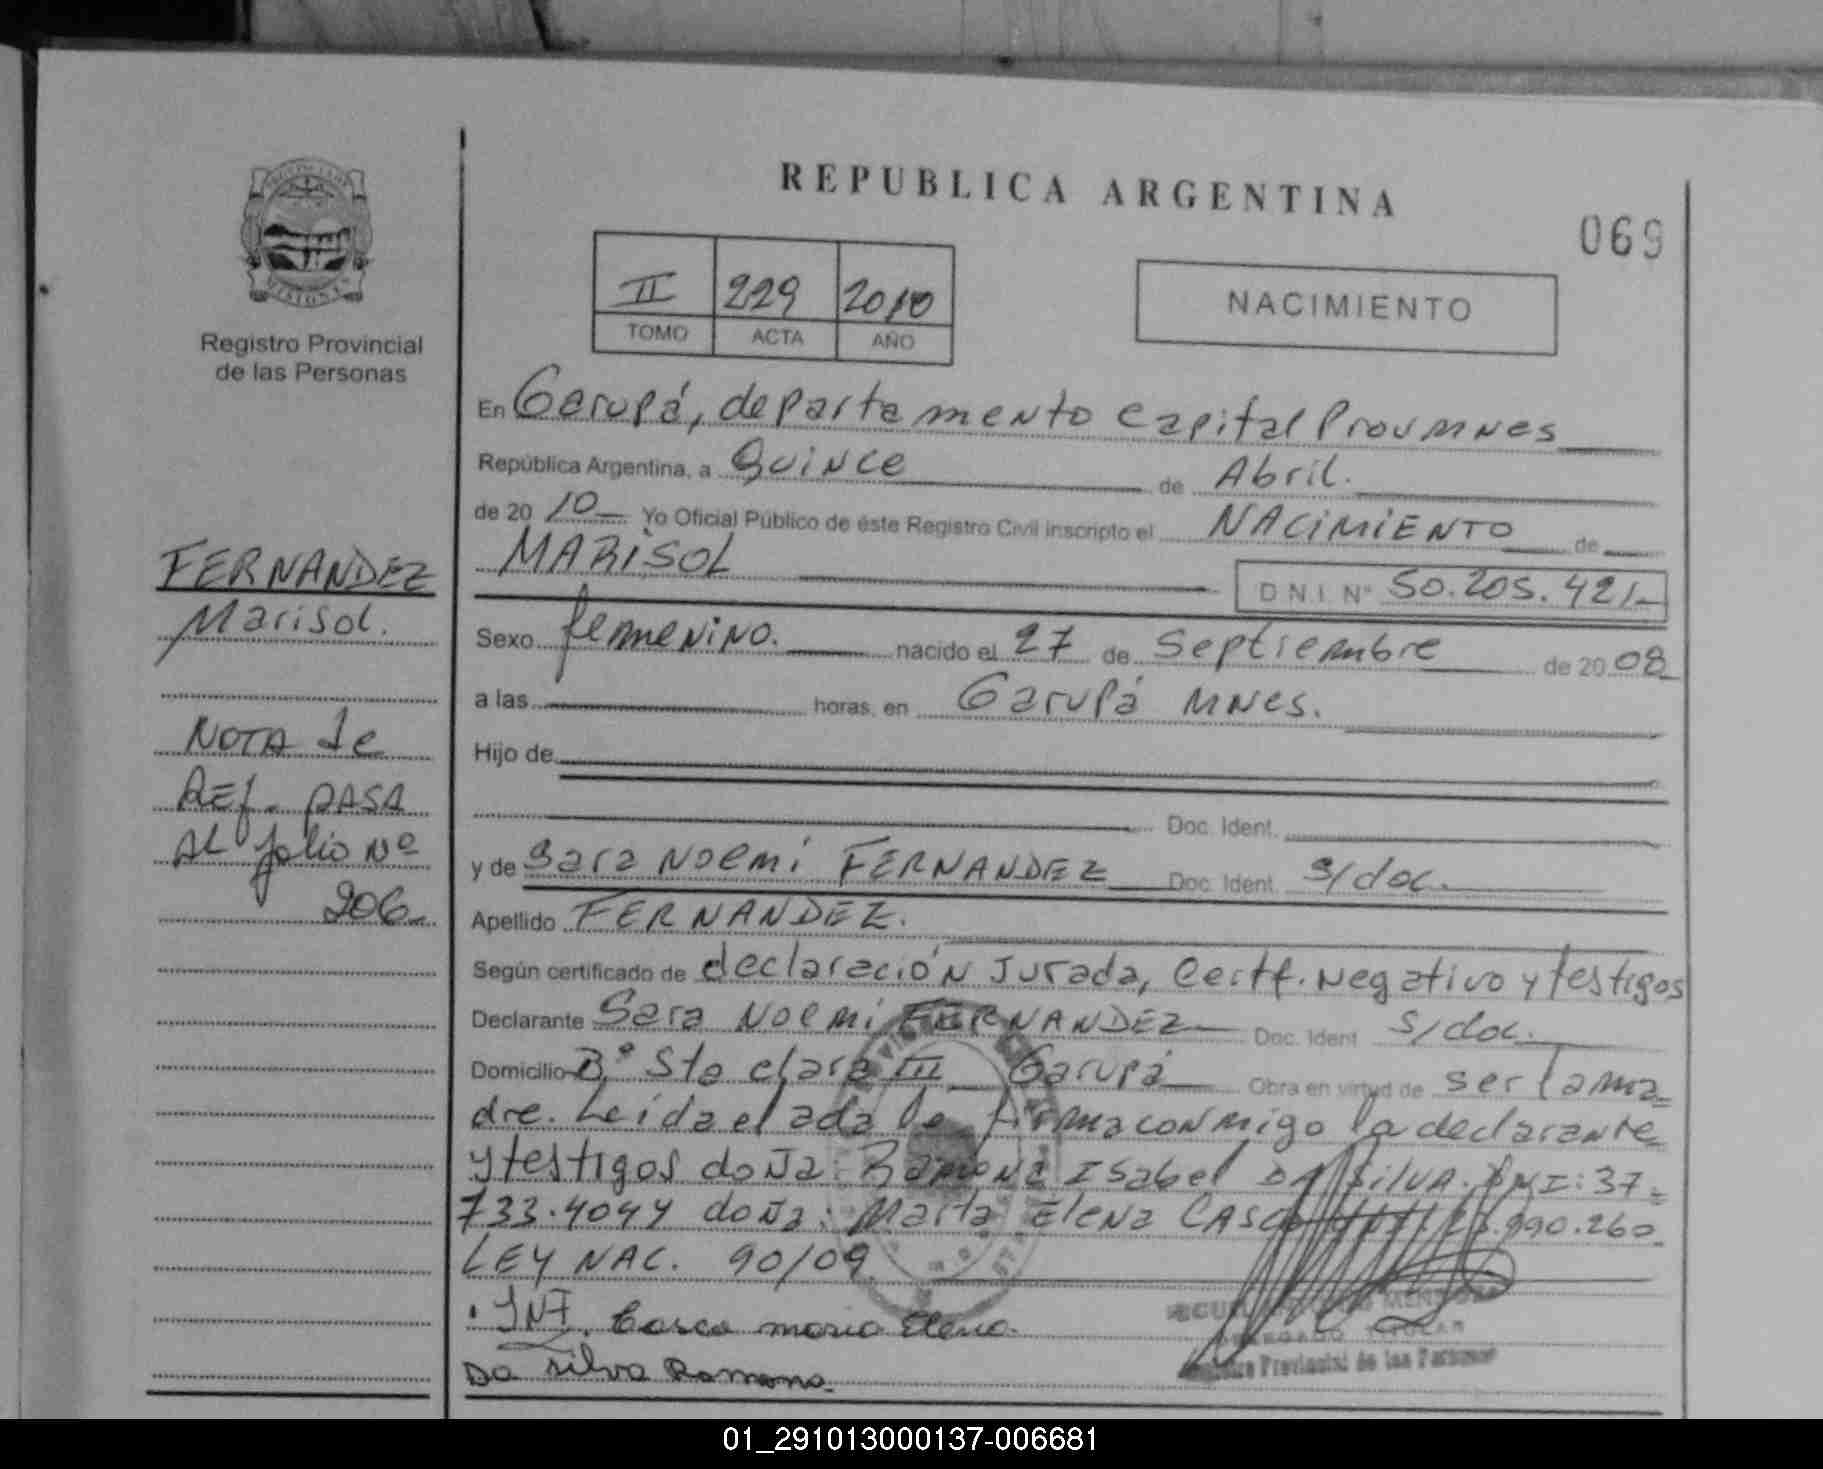 REPUBLICA ARGENTINA
069
II 229 2010
TOMO ACTA AÑO
NACIMIENTO
MISIONES
Registro Provincial
de las Personas
FERNANDEZ
Marisol.
NOTA de
REf. PASA
AL folio Nº
206
En Garupá, departamento Capital Prov MNES
República Argentina, a Quince de Abril.
de 20 10 Yo Oficial Público de éste Registro Civil inscripto el NACIMIENTO de
MARISOL D.N.I. Nº 50.205.421
Sexo femenino. nacido el 27 de Septiembre de 20 08
a las horas, en Garupá MNES.
Hijo de
Doc. Ident.
y de Sara Noemí FERNANDEZ Doc. Ident. S/doc.
Apellido FERNANDEZ.
Según certificado de declaración Jurada, Certf. Negativo y testigos
Declarante Sara Noemí FERNANDEZ Doc. Ident S/doc.
Domicilio Bº Sta clara III Garupá Obra en virtud de ser la ma
dre. Leída el acta la firma conmigo la declarante
y testigos doña: Ramona Isabel DA SILVA. DNI: 37
733.4044 doña: Marta Elena CASCO .990.260
LEY NAC. 90/09
Casco maria Elena
Da silva Ramona
TITULAR
Provincial de las Personas
01_291013000137-006681